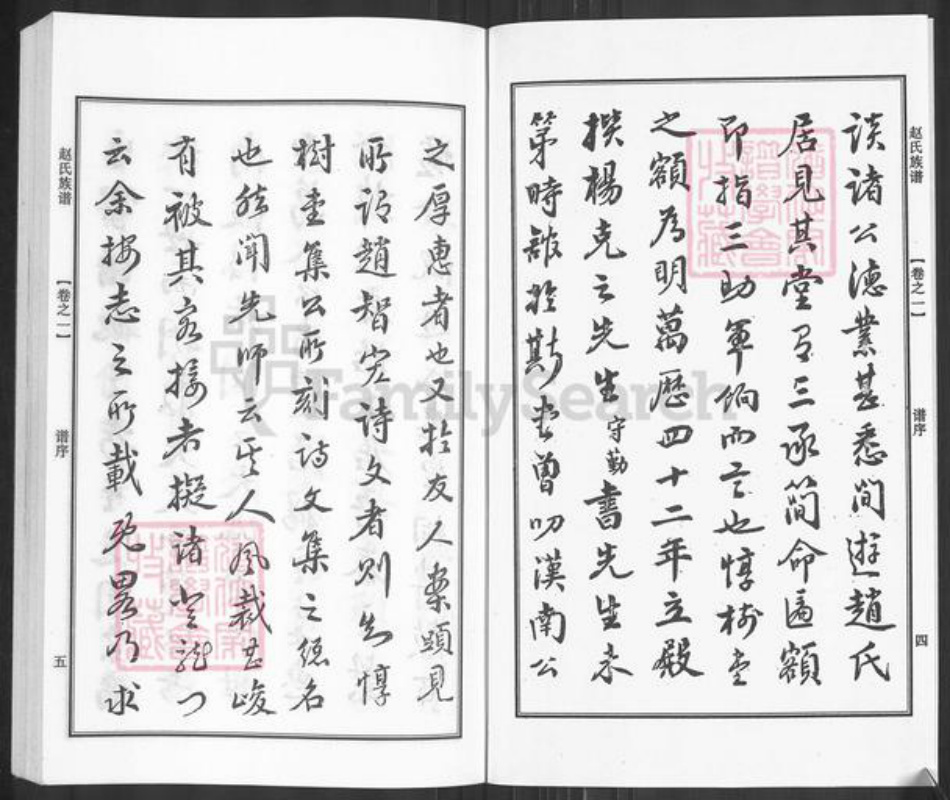 赵氏族谱 【卷之一】 谱序 四
談诸公德業甚悉間遊趙氏
居見其堂有三承簡命匾額
即指三助軍餉而言也惇樹堂
之額為明萬歷四十二年立殿
撰楊克之先生守勤書先生未
第時館於斯堂曾叨漢南公
之厚惠者也又於友人案頭見
所谓趙智安詩文者则知惇
樹堂集公所刻诗文集之總名
也然聞先师云其人風裁甚峻
有被其容接者擬諸登龍门
云余按志之所載既畧乃求
赵氏族谱 【卷之一】 谱序 五
FamilySearch